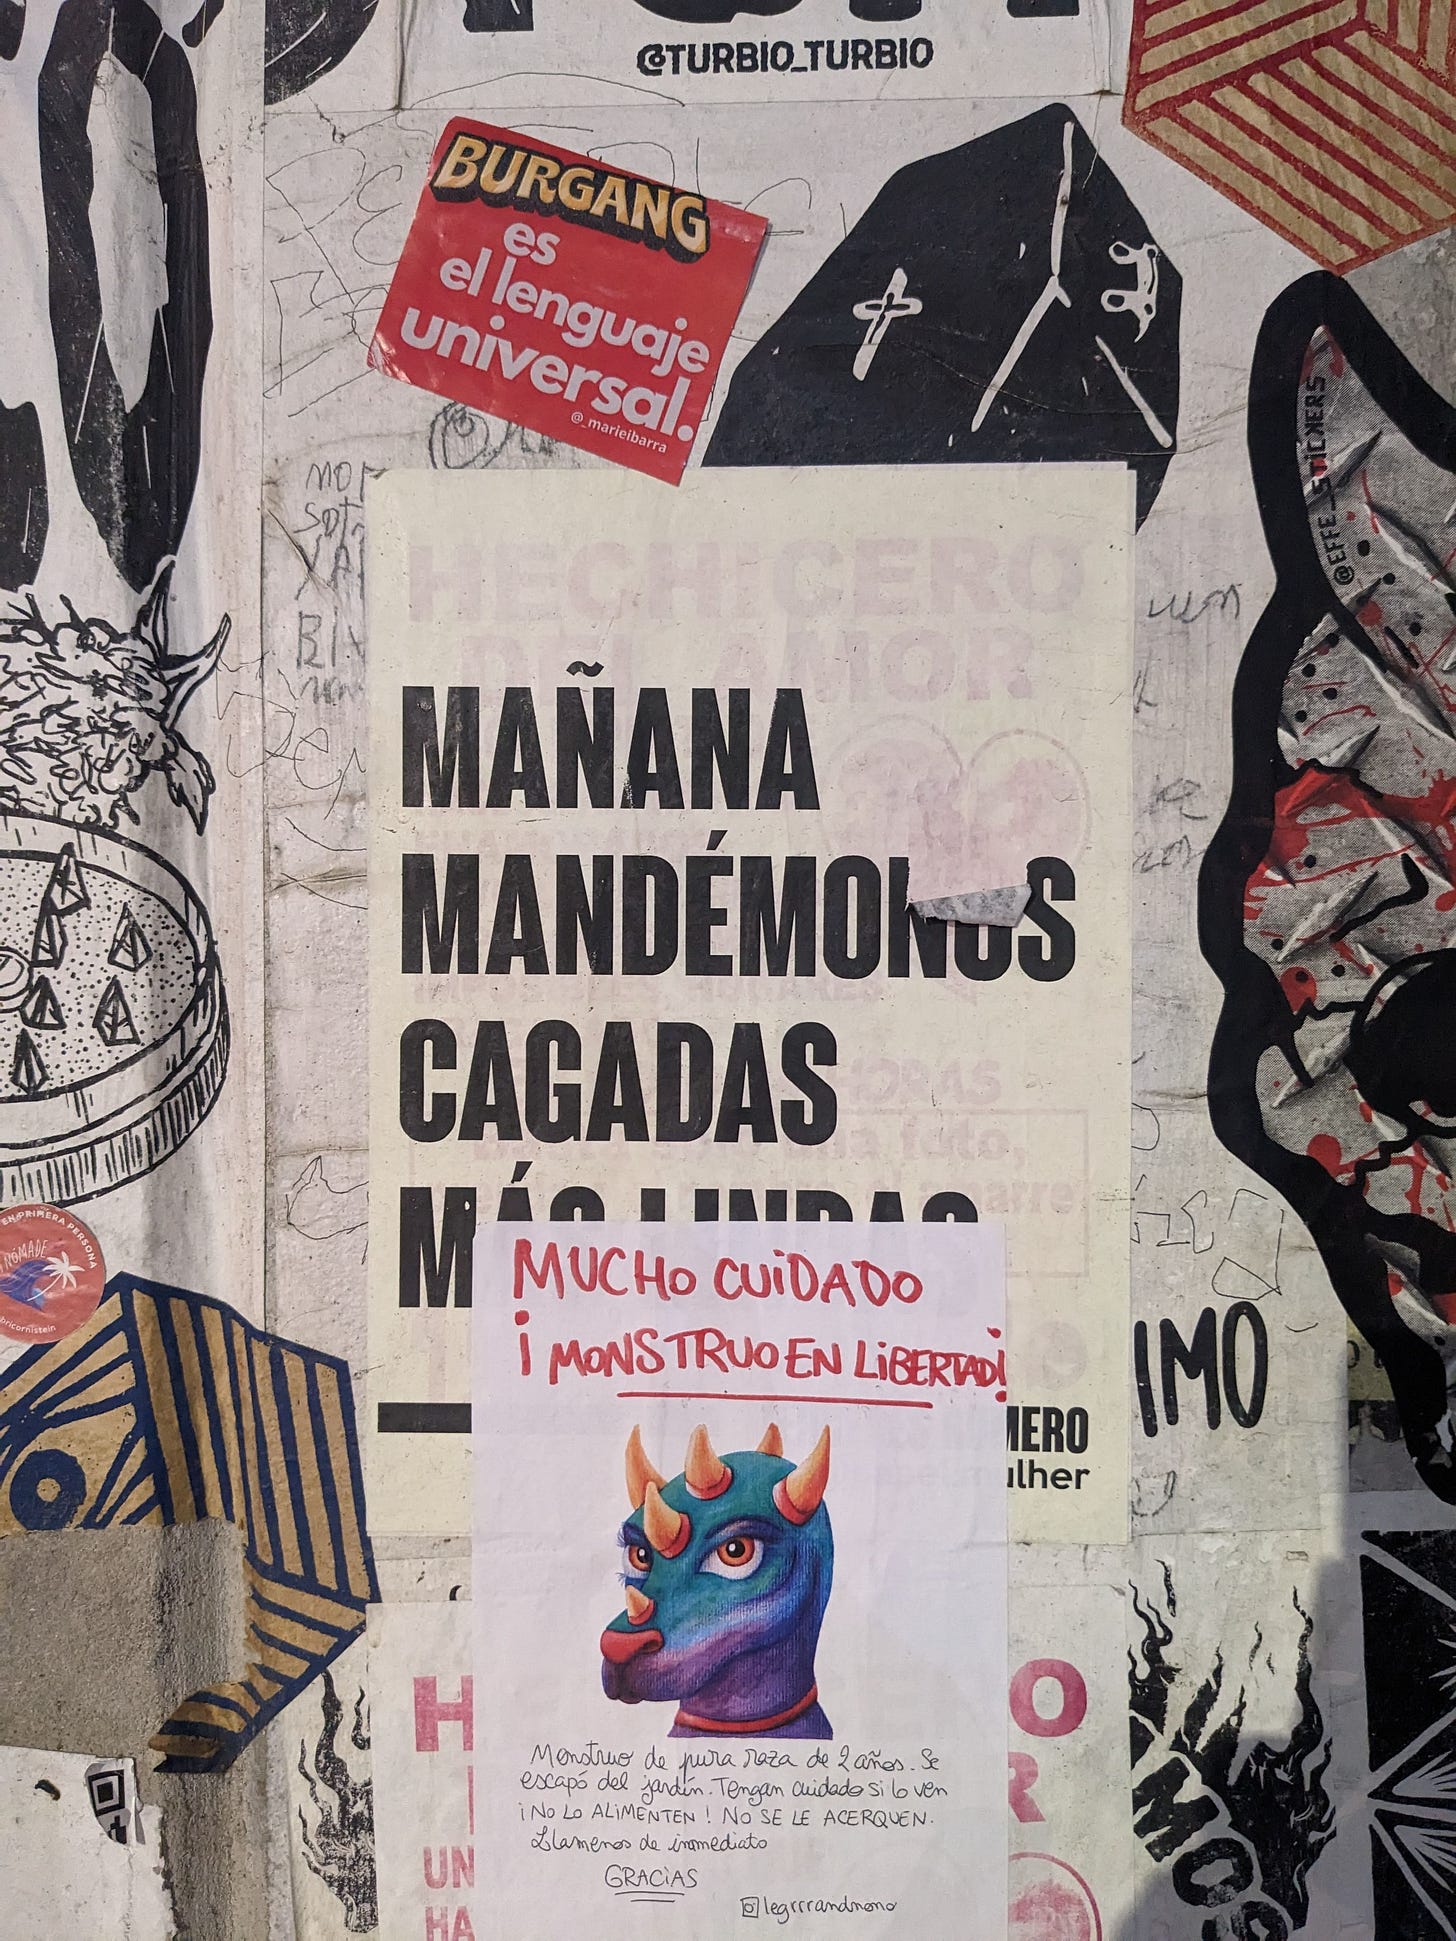 @TURBIO_TURBIO
BURGANG
es
el lenguaje
universal.
@_marieibarra
@EFFE_STICKERS
HECHICERO
DEL AMOR
MAÑANA
MANDÉMONOS
CAGADAS
MÁS LINDAS
HORAS
foto,
amarre
MERO
ulher
IMO
EN PRIMERA PERSONA
NÓMADE
bricornistein
MUCHO CUIDADO
¡MONSTRUO EN LIBERTAD!
Monstruo de pura raza de 2 años. Se
escapó del jardín. Tengan cuidado si lo ven
¡NO LO ALIMENTEN! NO SE LE ACERQUEN.
Llamenos de inmediato
GRACIAS
legrrrandnono
H
O
R
UN
HA
MOS